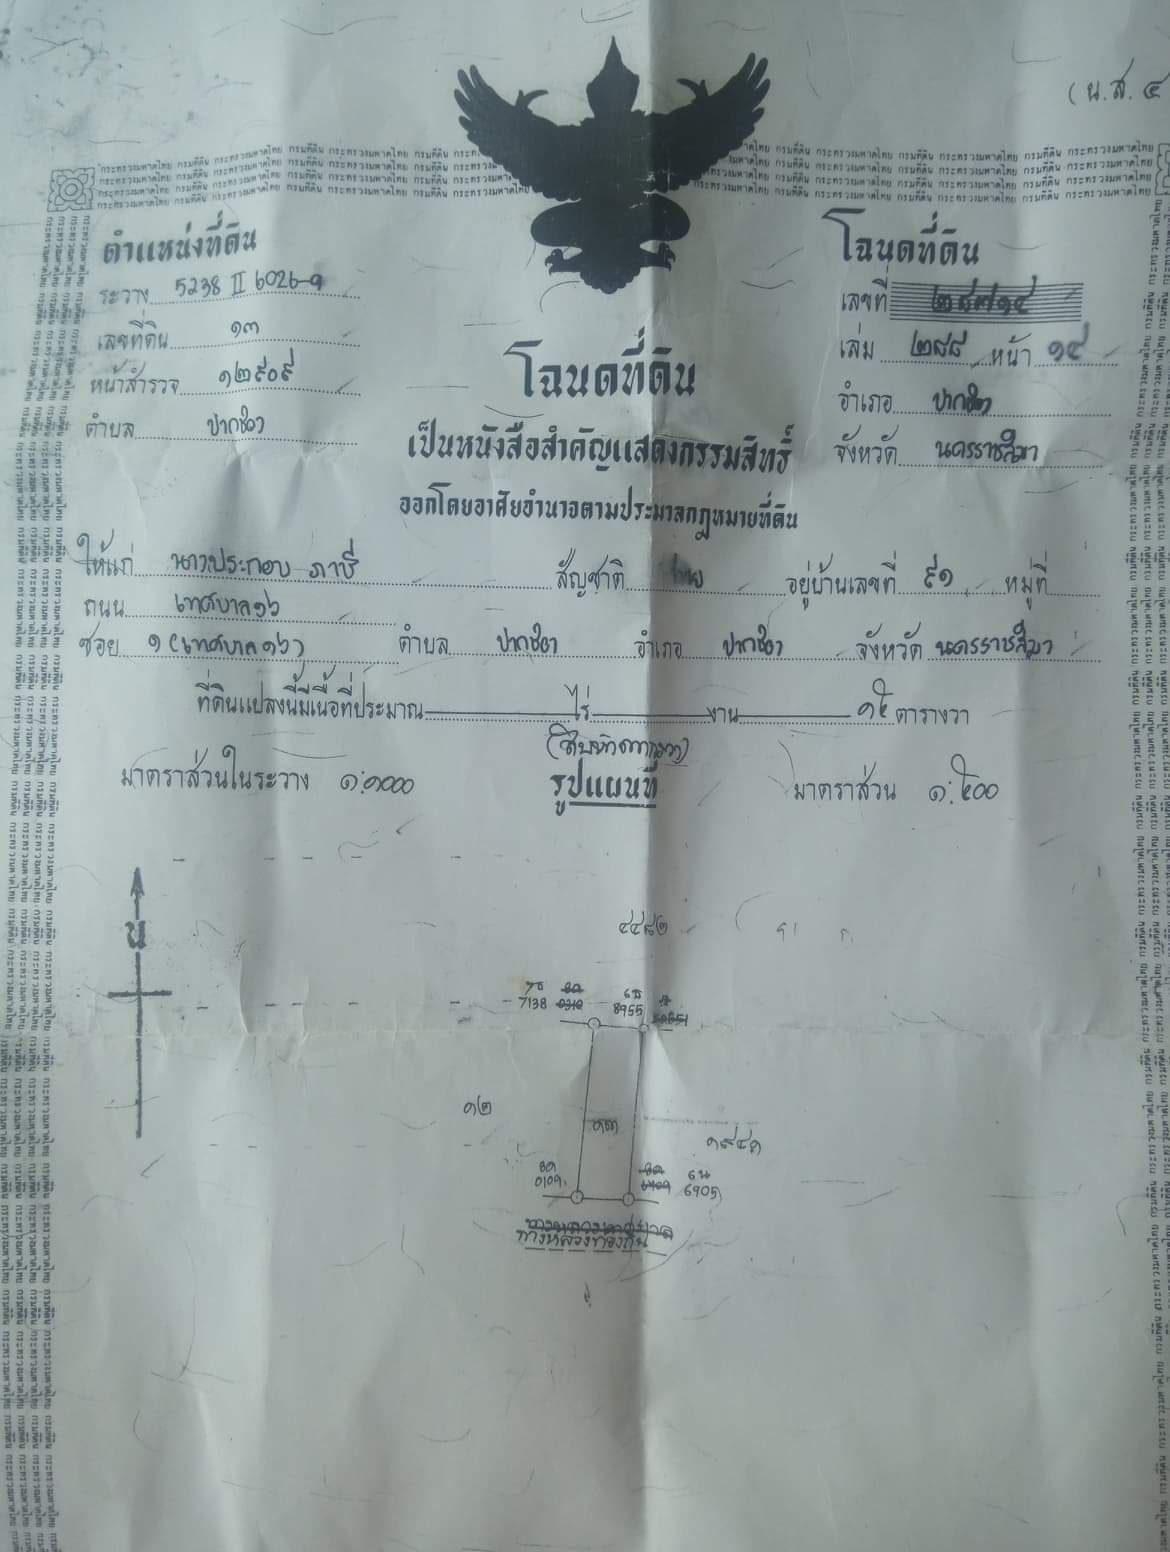 (น.ส. ๔
กระทรวงมหาดไทย กรมที่ดิน กระทรวงมหาดไทย กรมที่ดิน กระทรวงมหาดไทย กรมที่ดิน
ตำแหน่งที่ดิน
ระวาง 5238 II 6026-๑
เลขที่ดิน ๑๓
หน้าสำรวจ ๑๒๙๐๙
ตำบล ปากช่อง
โฉนดที่ดิน
เลขที่
เล่ม ๒๘๘ หน้า ๑๔
อำเภอ ปากช่อง
จังหวัด นครราชสีมา
โฉนดที่ดิน
เป็นหนังสือสำคัญแสดงกรรมสิทธิ์
ออกโดยอาศัยอำนาจตามประมวลกฎหมายที่ดิน
ให้แก่ นางประกอบ ภาชี สัญชาติ ไทย อยู่บ้านเลขที่ ๙๑ หมู่ที่
ถนน เทศบาล๑๖
ซอย ๑(เทศบาล๑๖) ตำบล ปากช่อง อำเภอ ปากช่อง จังหวัด นครราชสีมา
ที่ดินแปลงนี้มีเนื้อที่ประมาณ ไร่ งาน ๑๕ ตารางวา
(สิบห้าตารางวา)
มาตราส่วนในระวาง ๑:๑๐๐๐ รูปแผนที่ มาตราส่วน ๑:๕๐๐
น
๔๔๘๒
7138 8955
๑๒ ๑๓ ๑๙๔๑
0109 6905
ทางหลวงท้องถิ่น